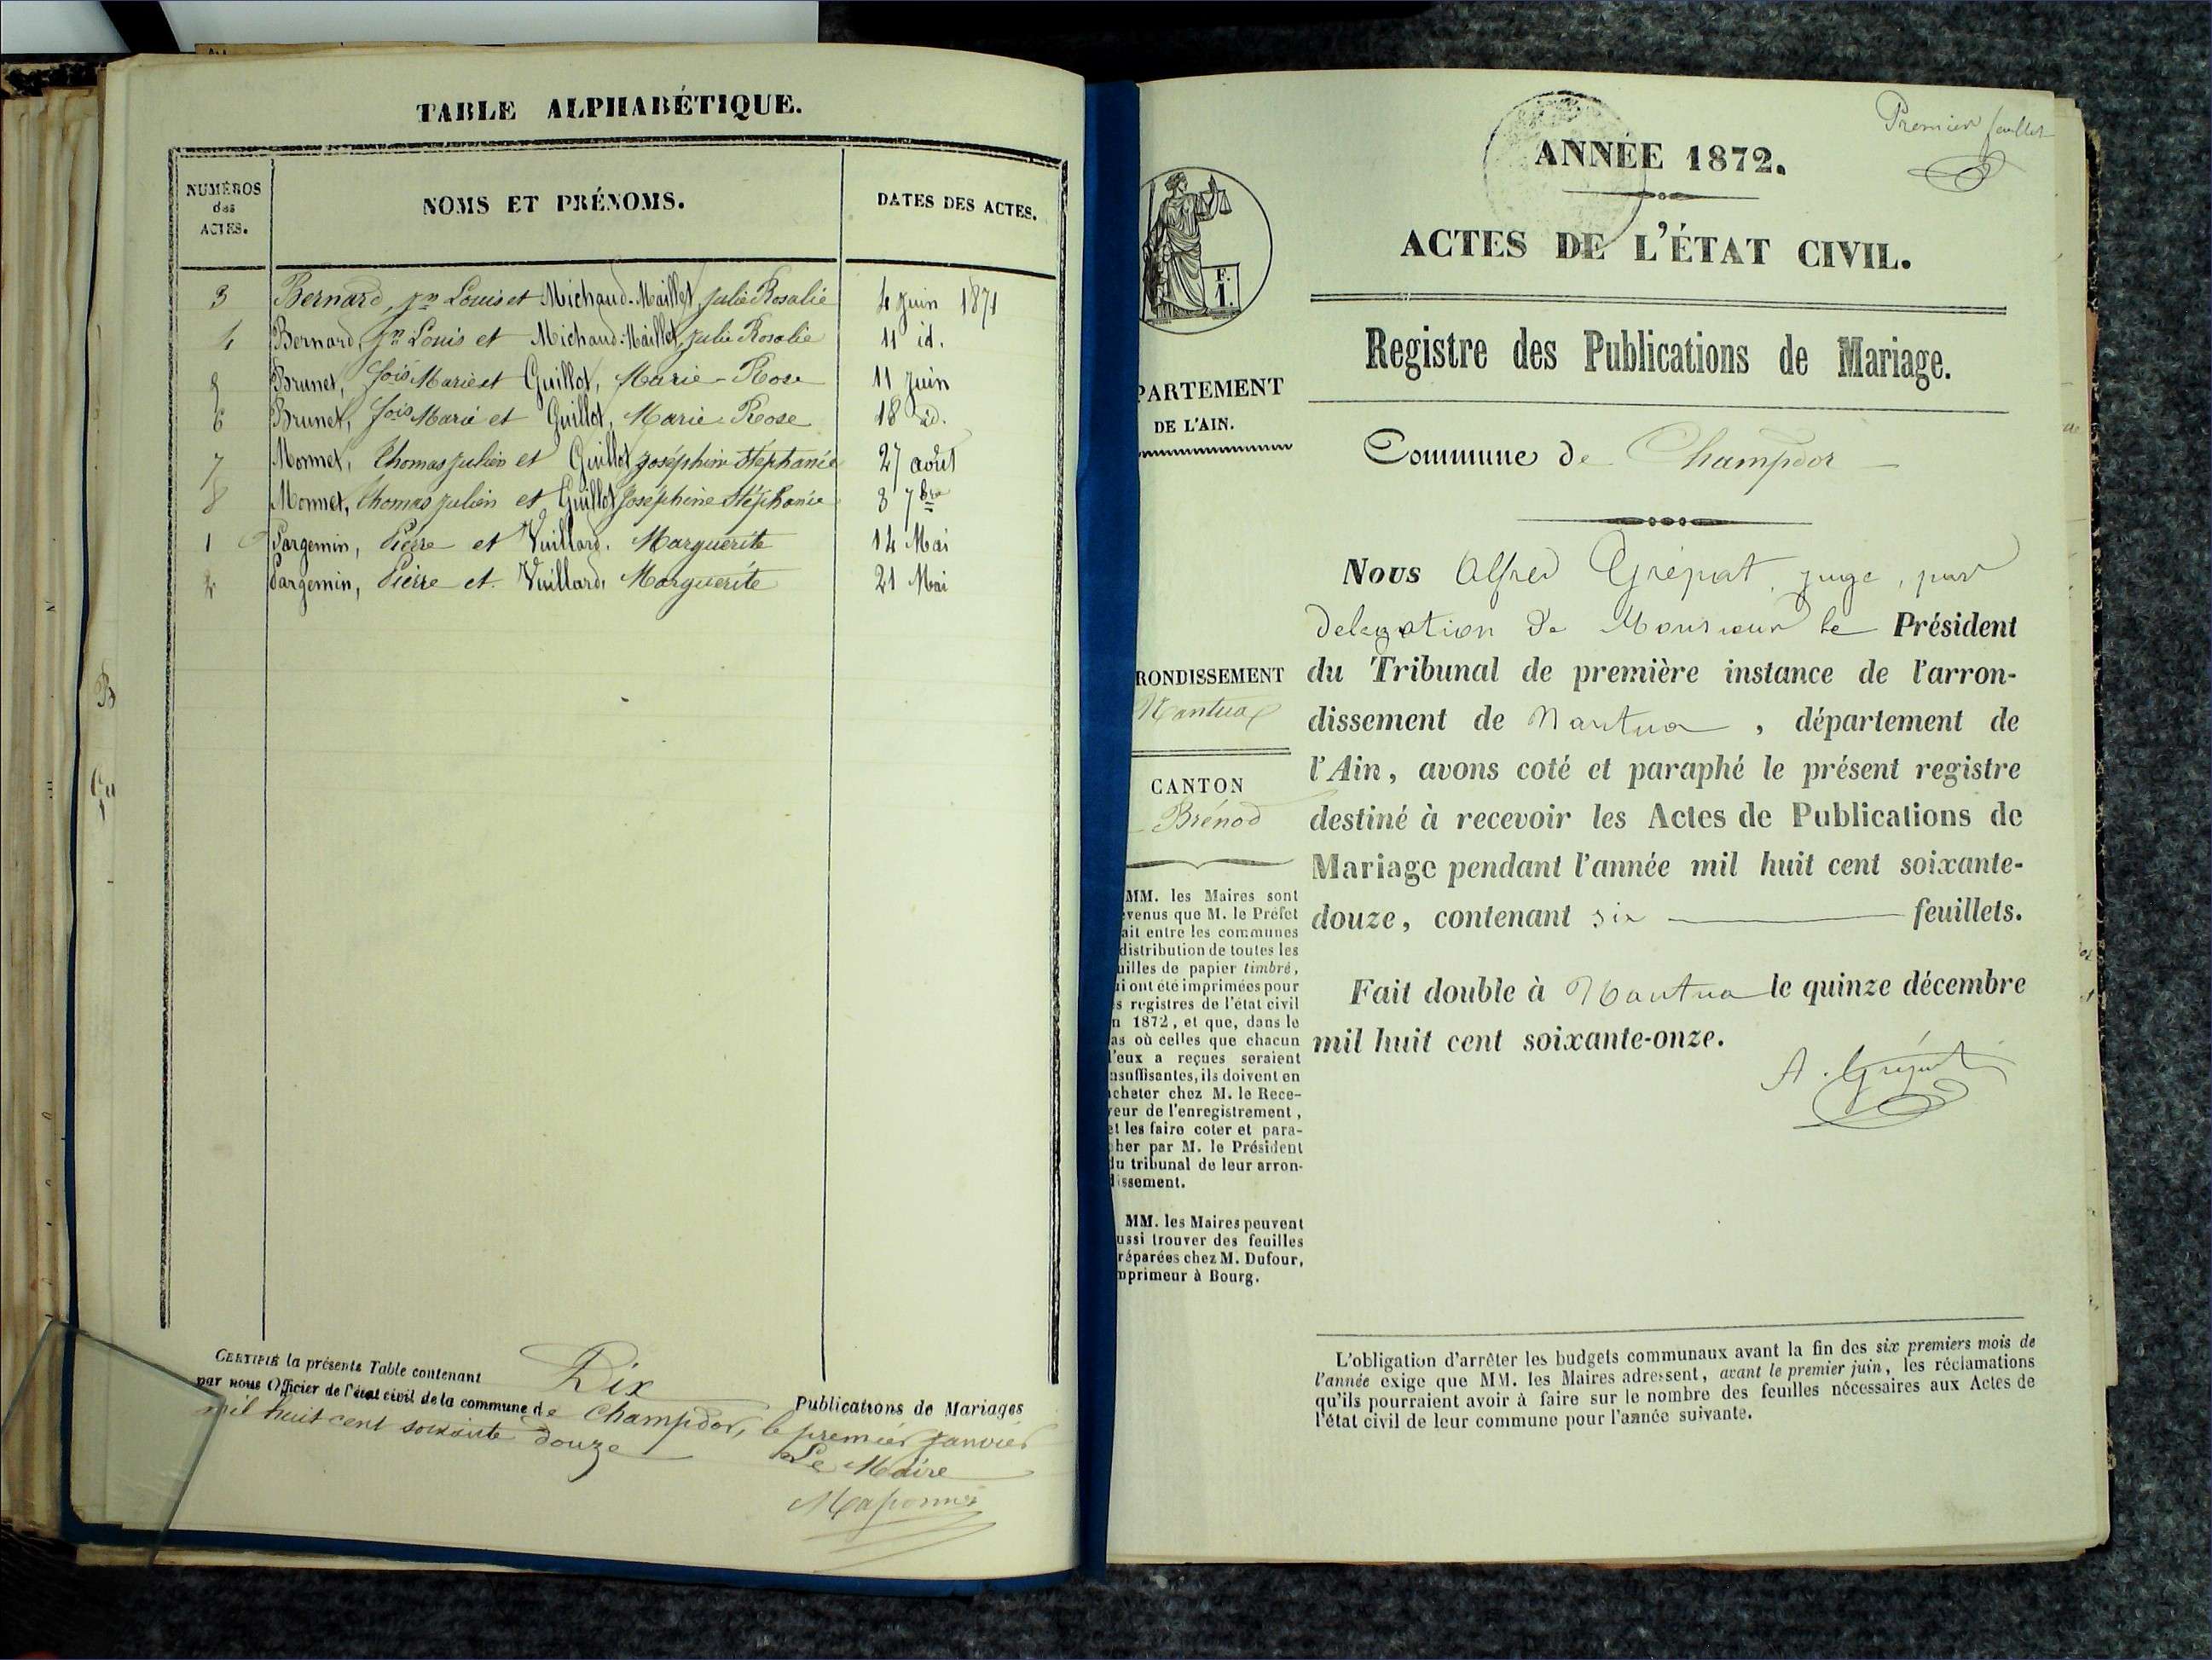 TABLE ALPHABÉTIQUE.
NUMÉROS
des
ACTES.
NOMS ET PRÉNOMS.
DATES DES ACTES.
3 Bernard, Jn Louis et Michaud-Maillet, Julie Rosalie 4 Juin 1871
4 Bernard, Jn Louis et Michaud-Maillet, Julie Rosalie 11 id.
Brunet, fois Marie et Guillot, Marie-Rose 11 Juin
6 Brunet, fois Marie et Guillot, Marie-Rose 18 id.
7 Monnet, Thomas Julien et Guillot Joséphine Stéphanie 27 août
8 Monnet, Thomas Julien et Guillot Joséphine Stéphanie 3 7bre
1 Pargemin, Pierre et Vuillard, Marguerite 14 Mai
2 Pargemin, Pierre et Vuillard, Marguerite 21 Mai
CERTIFIÉ la présente Table contenant Dix Publications de Mariages
par nous Officier de l'état civil de la commune de Champdor, le premier Janvier
mil huit cent soixante douze
Le Maire
Premier feuillet
ANNÉE 1872.
ACTES DE L'ÉTAT CIVIL.
F.
1.
Registre des Publications de Mariage.
PARTEMENT
DE L'AIN.
Commune de Champdor
Nous Alfred Grépat, juge, par
delegation de Monsieur le Président
du Tribunal de première instance de l'arron-
dissement de Nantua, département de
l'Ain, avons coté et paraphé le présent registre
destiné à recevoir les Actes de Publications de
Mariage pendant l'année mil huit cent soixante-
douze, contenant six feuillets.
Fait double à Nantua le quinze décembre
mil huit cent soixante-onze.
A. Grépat
RONDISSEMENT
Nantua
CANTON
Brénod
MM. les Maires sont
evenus que M. le Préfet
ait entre les communes
distribution de toutes les
uilles de papier timbré,
i ont été imprimées pour
s registres de l'état civil
n 1872, et que, dans le
as où celles que chacun
l'eux a reçues seraient
nsuffisantes, ils doivent en
cheter chez M. le Rece-
veur de l'enregistrement,
et les faire coter et para-
pher par M. le Président
du tribunal de leur arron-
dissement.
MM. les Maires peuvent
ussi trouver des feuilles
réparées chez M. Dufour,
mprimeur à Bourg.
L'obligation d'arrêter les budgets communaux avant la fin des six premiers mois de
l'année exige que MM. les Maires adressent, avant le premier juin, les réclamations
qu'ils pourraient avoir à faire sur le nombre des feuilles nécessaires aux Actes de
l'état civil de leur commune pour l'année suivante.